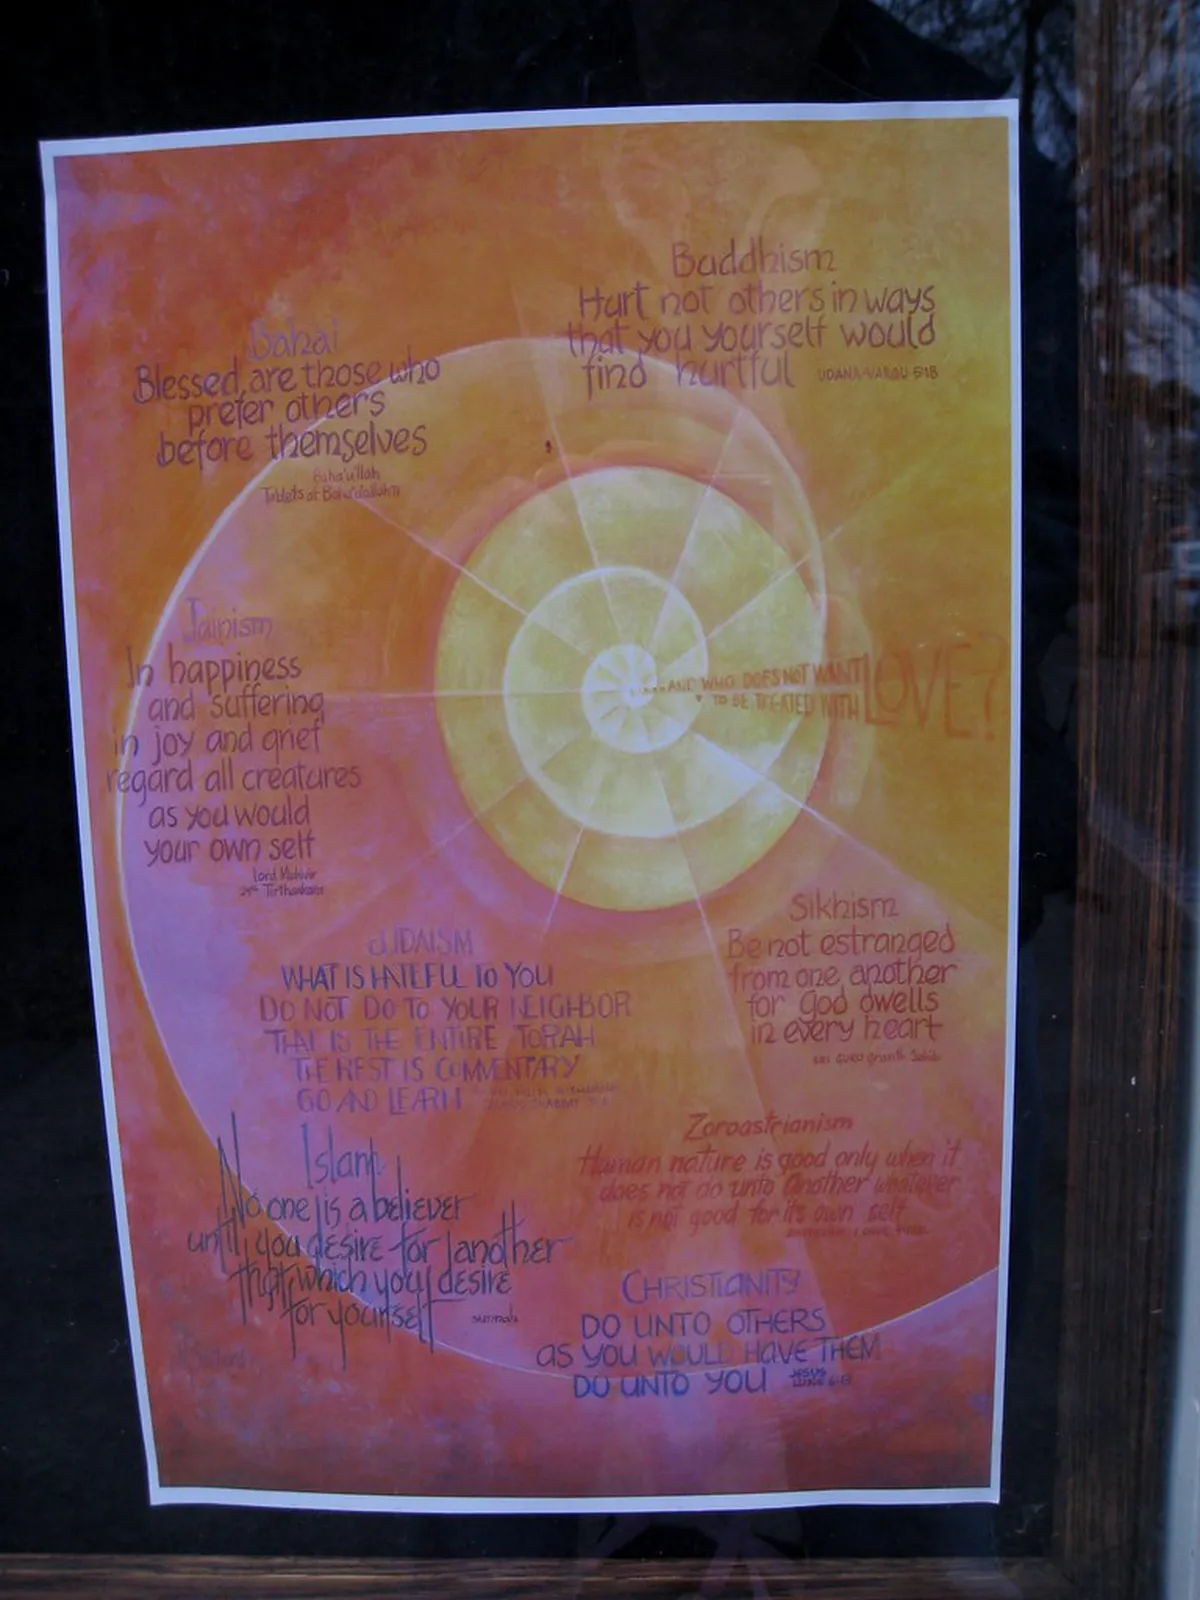 Buddhism
Hurt not others in ways
that you yourself would
find hurtful UDANA-VARGU 5:18
Bahai
Blessed are those who
prefer others
before themselves
Baha'u'llah
Tablets of Baha'u'llah
Jainism
In happiness
and suffering
in joy and grief
regard all creatures
as you would
your own self
Lord
24th
...AND WHO DOES NOT WANT
TO BE TREATED WITH LOVE?
Sikhism
Be not estranged
from one another
for God dwells
in every heart
Sri Guru Granth Sahib
JUDAISM
WHAT IS HATEFUL TO YOU
DO NOT DO TO YOUR NEIGHBOR
THAT IS THE ENTIRE TORAH
THE REST IS COMMENTARY
GO AND LEARN
Zoroastrianism
Human nature is good only when it
does not do unto another whatever
is not good for its own self
Islam
No one is a believer
until you desire for another
that which you desire
for yourself sunnah
CHRISTIANITY
DO UNTO OTHERS
AS YOU WOULD HAVE THEM
DO UNTO YOU JESUS
LUKE